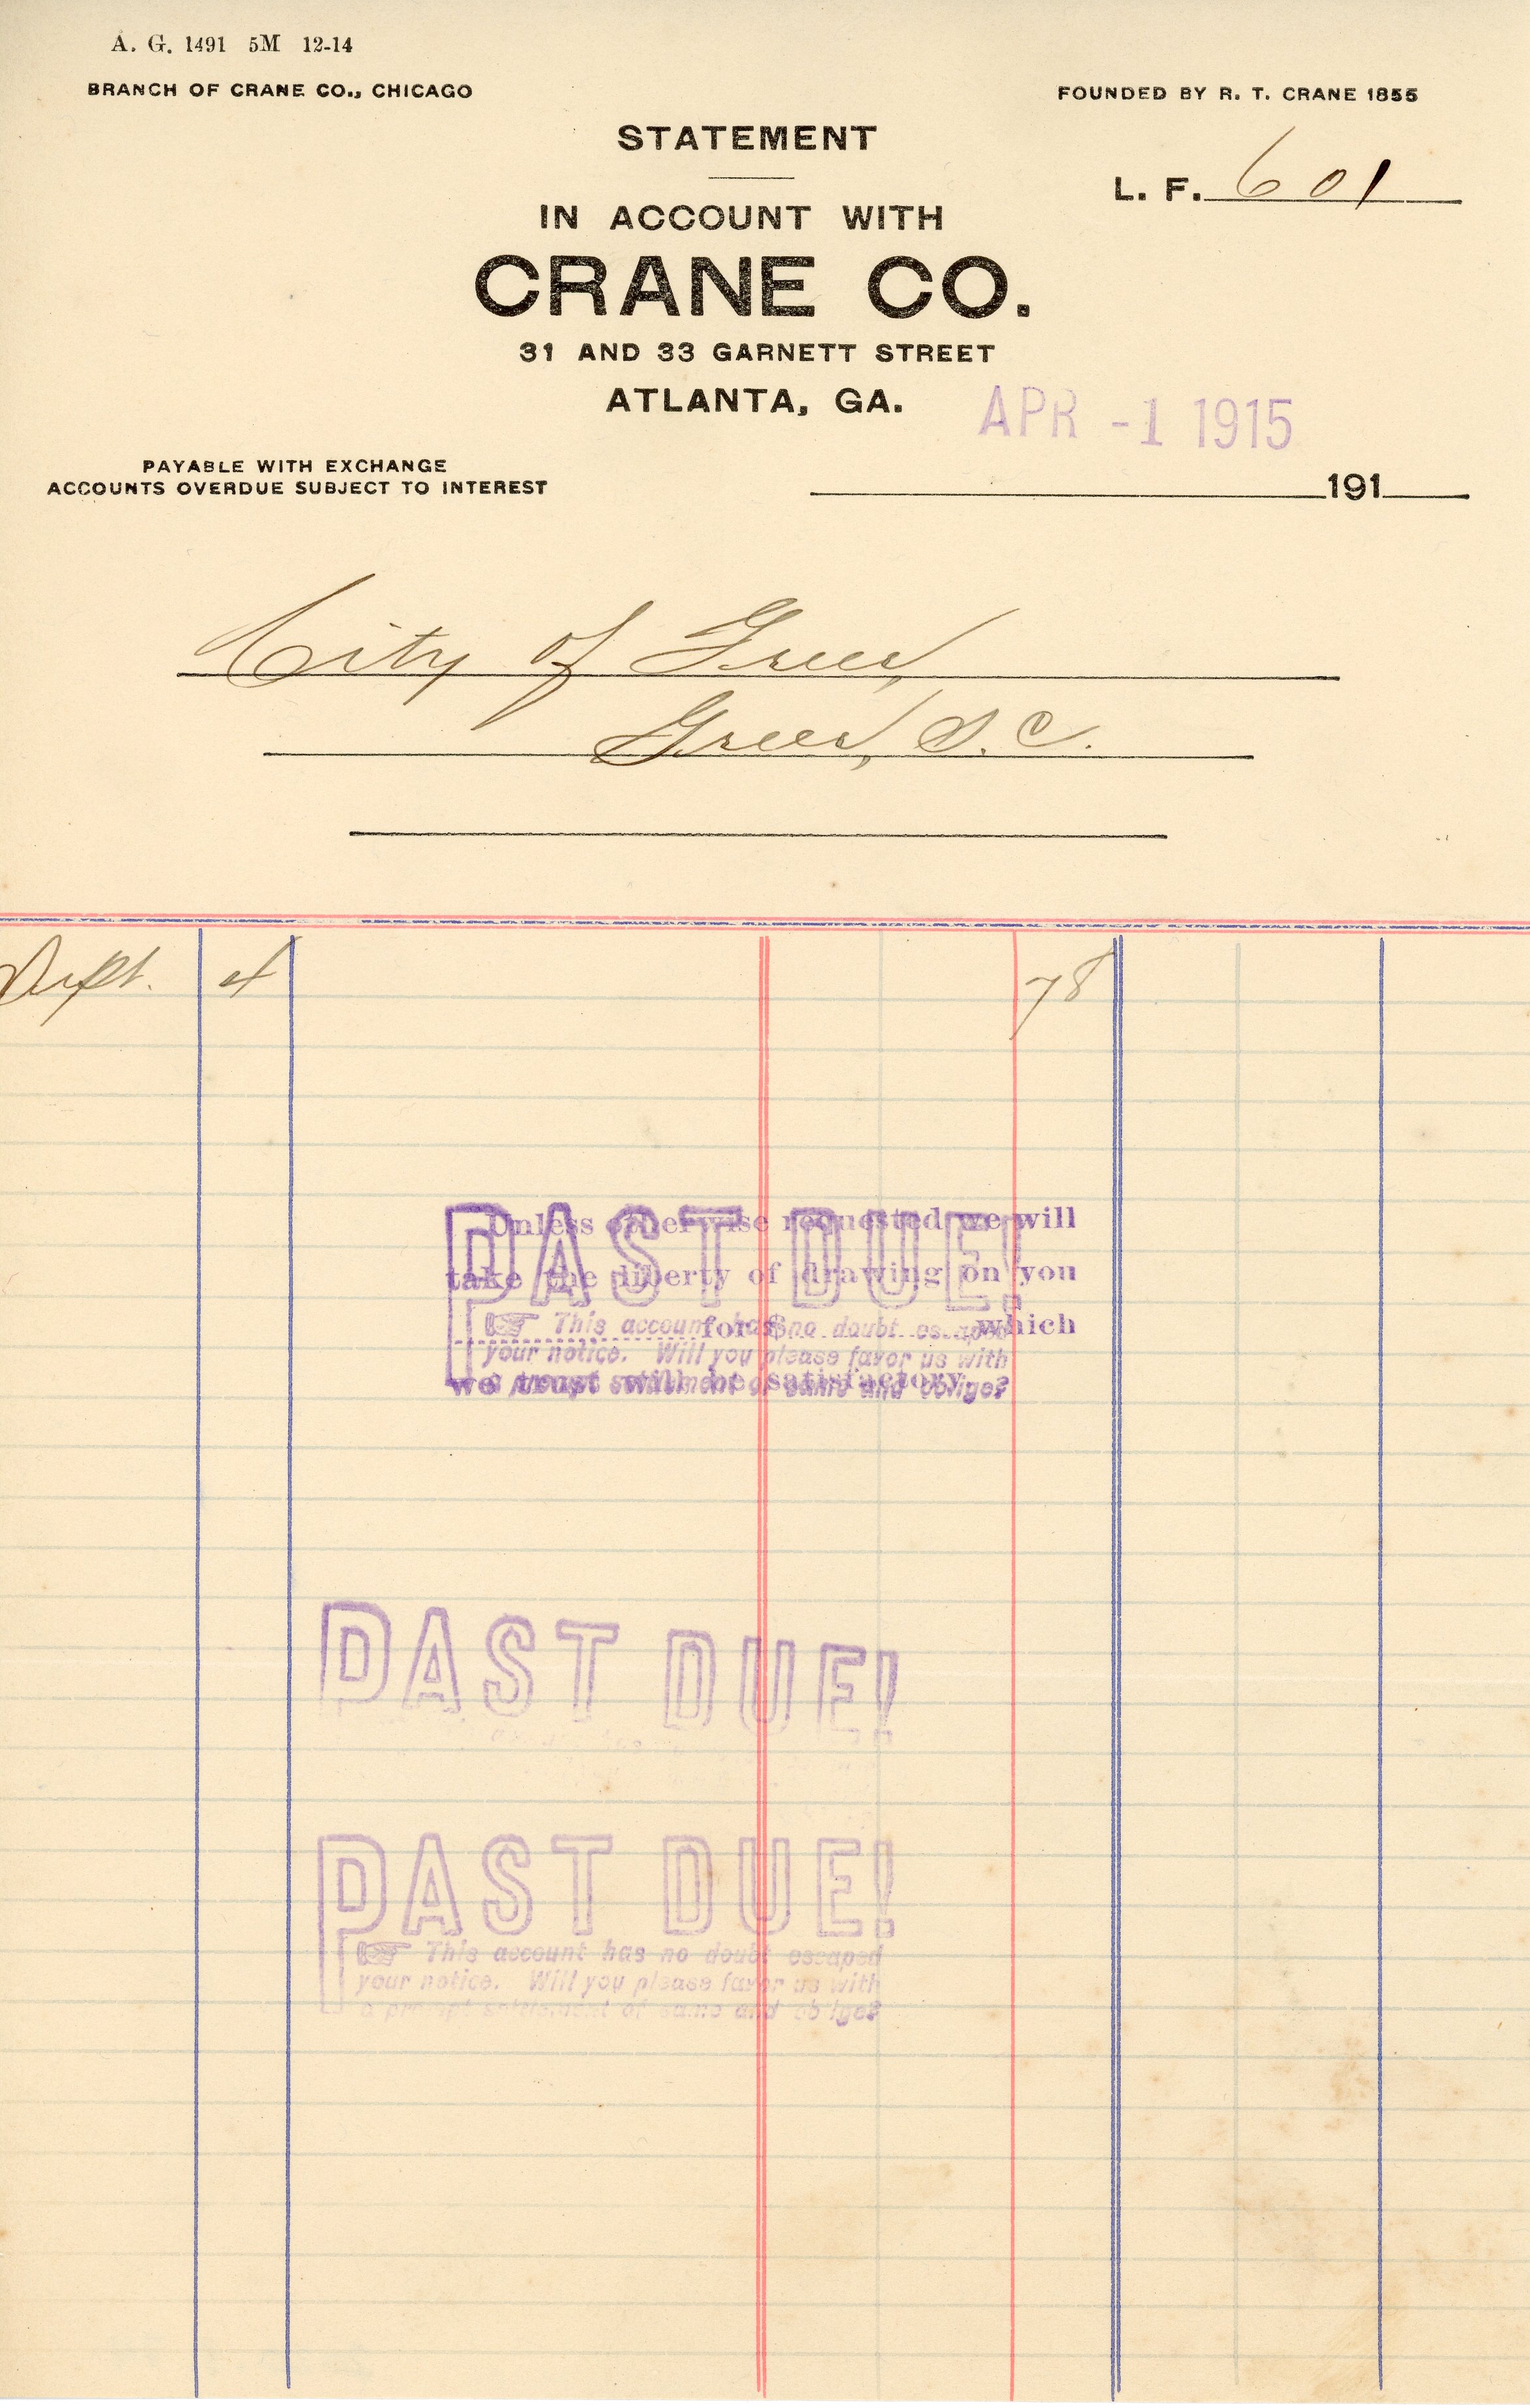 A. G. 1491 5M 12-14
BRANCH OF CRANE CO., CHICAGO
FOUNDED BY R. T. CRANE 1855
STATEMENT
L. F. 601
IN ACCOUNT WITH
CRANE CO.
31 AND 33 GARNETT STREET
ATLANTA, GA.
APR -1 1915
PAYABLE WITH EXCHANGE
ACCOUNTS OVERDUE SUBJECT TO INTEREST
191
City of Greer,
Greer, S. C.
Sept. 4 78
PAST DUE!
Unless otherwise requested we will
take the liberty of drawing on you
for $ which
we trust will be satisfactory.
This account has no doubt escaped
your notice. Will you please favor us with
a prompt settlement of same and oblige?
PAST DUE!
PAST DUE!
This account has no doubt escaped
your notice. Will you please favor us with
a prompt settlement of same and oblige?